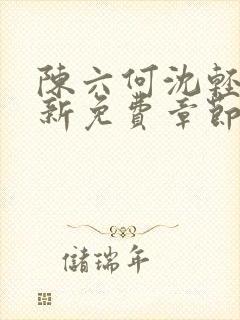 陳六何沈輕
新免費章節
儲瑞年